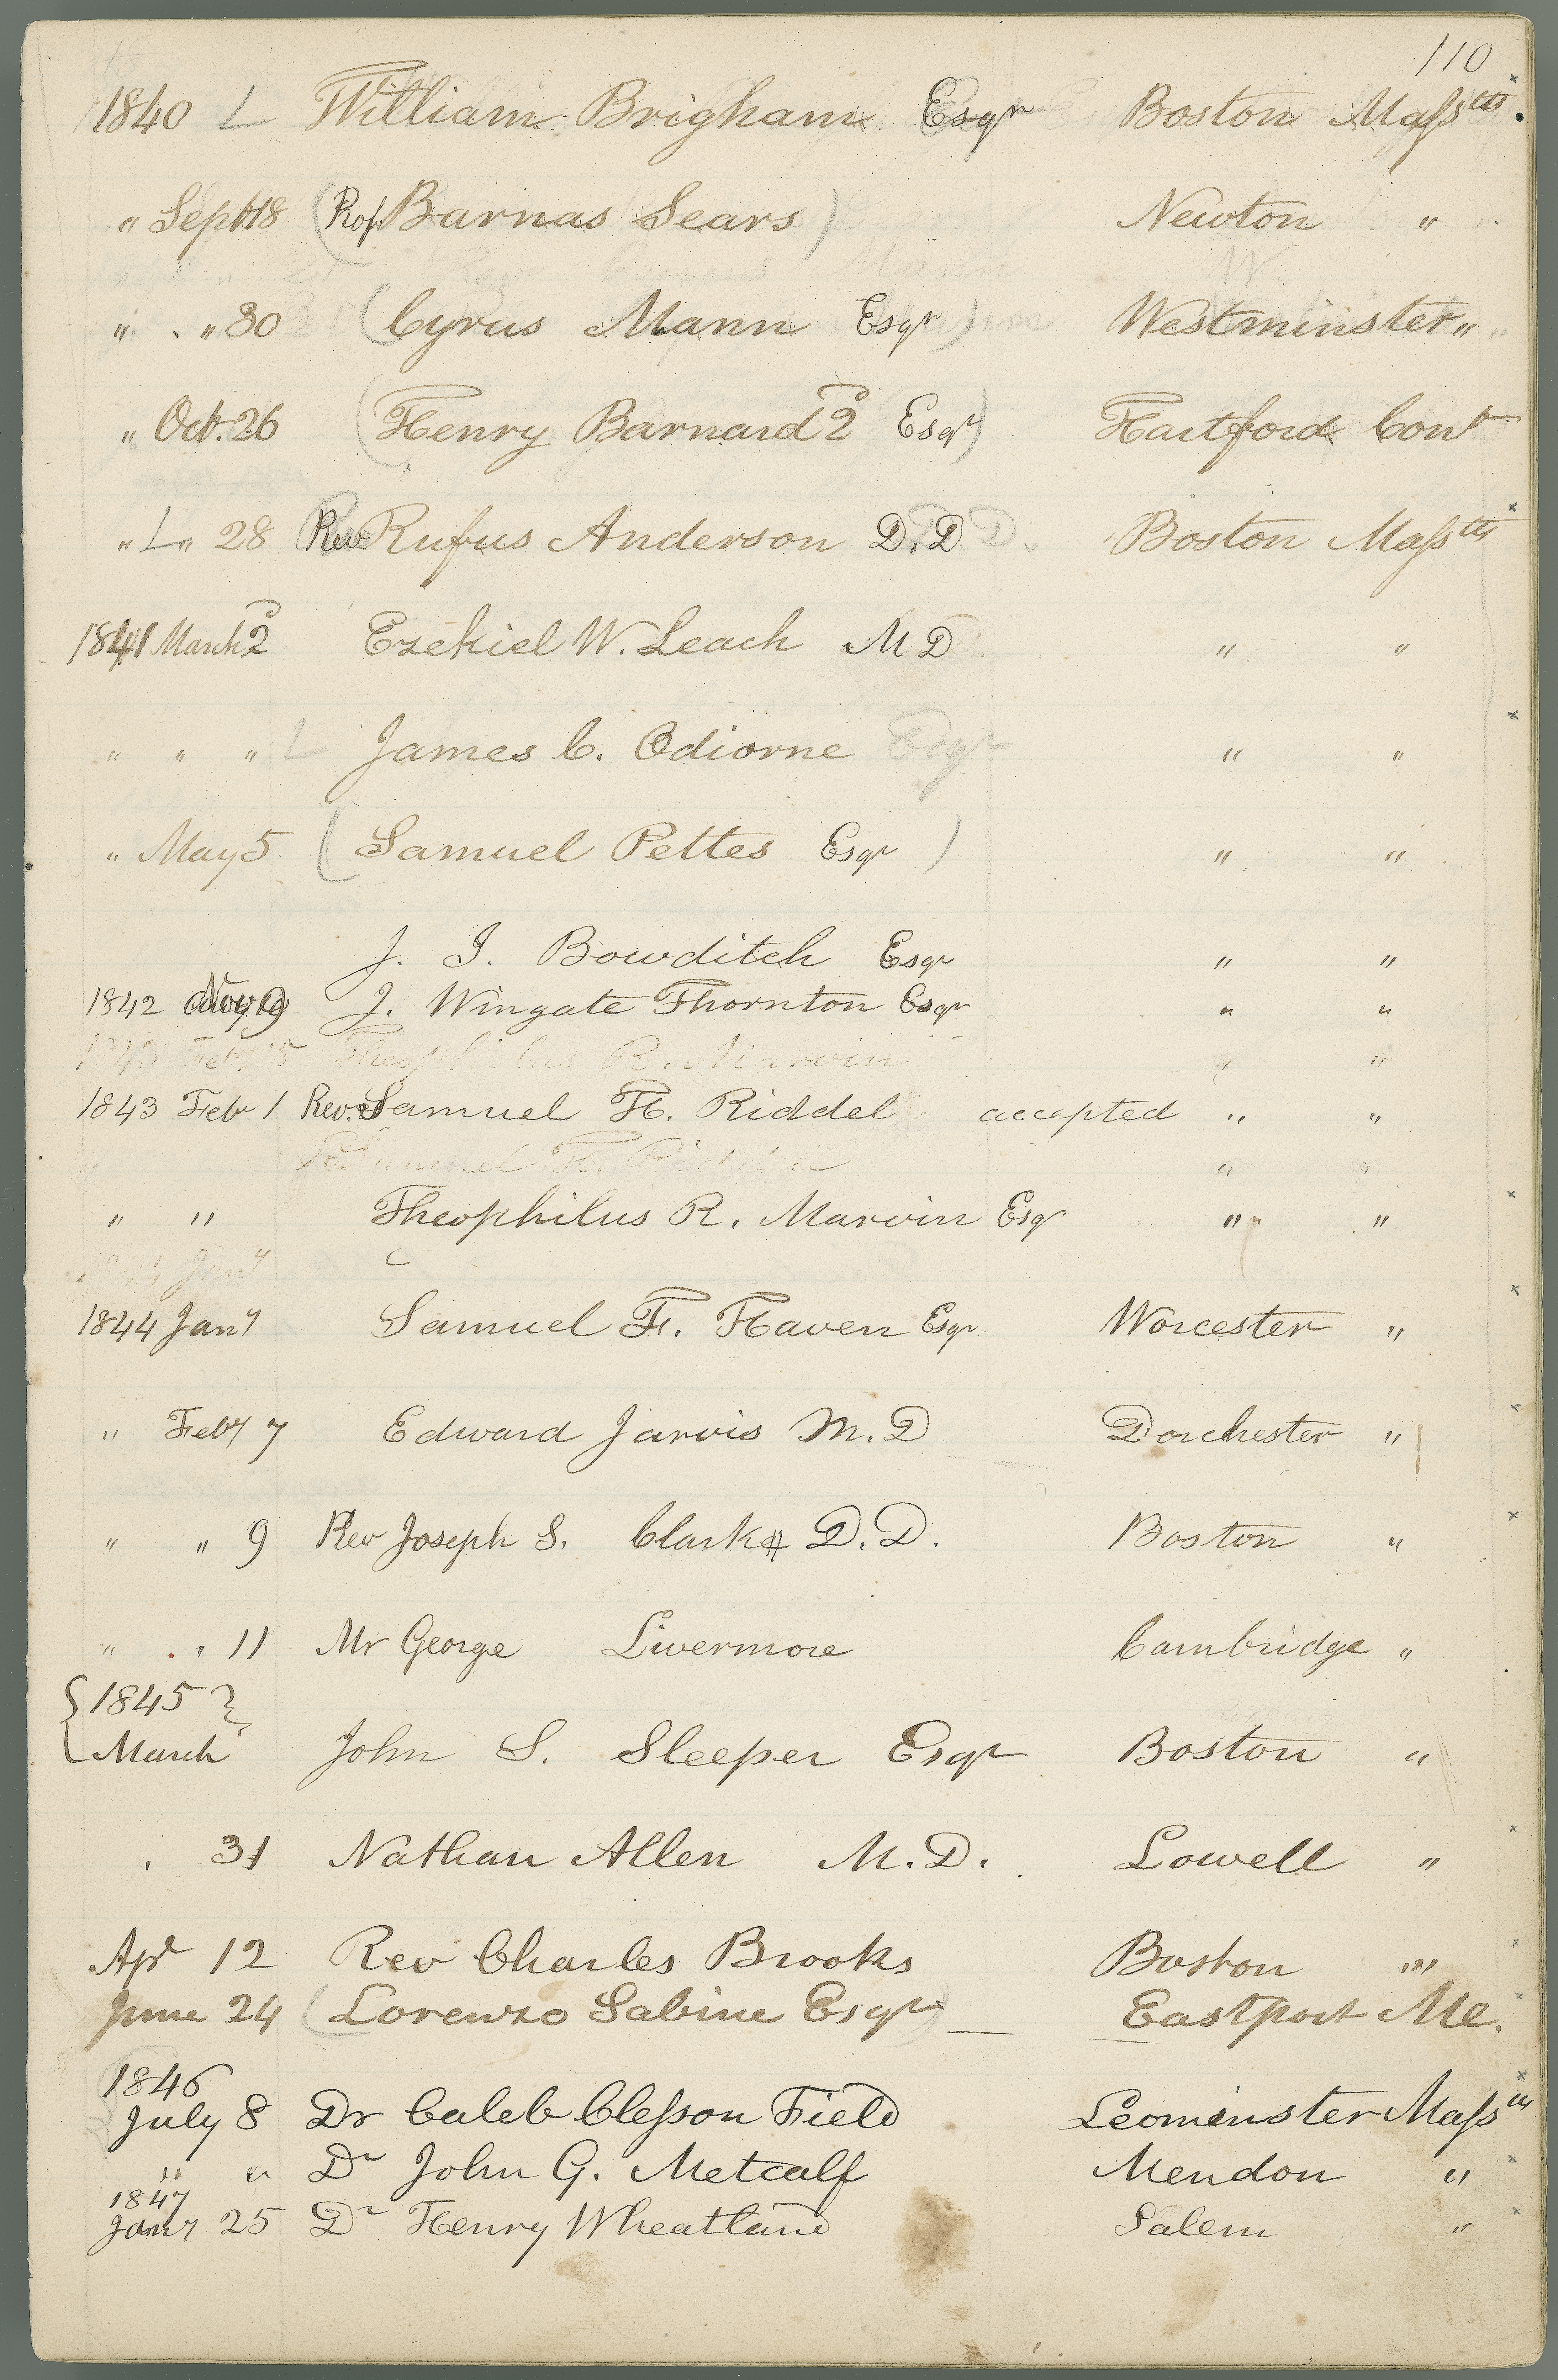 110
1840 L William Brigham Esqr Boston Massts.
" Sept 18 (Rof Barnas Sears) Newton "
" " 30 (Cyrus Mann Esqr) Westminster "
" Oct. 26 (Henry Barnard 2d Esqr) Hartford Cont
" L " 28 Rev. Rufus Anderson D.D Boston Massts
1841 March 2d Ezekiel W. Leach M D " "
" " " L James C. Odiorne Esqr " "
" May 5 (Samuel Pettes Esqr) " "
J. I. Bowditch Esqr " "
1842 Nov 9 J. Wingate Thornton Esqr " "
1843 Feb 15 Theophilus R. Marvin " "
1843 Feb 1 Rev. Samuel H. Riddel accepted " "
Samuel H. Riddel " "
" " Theophilus R. Marvin Esqr " "
1844 Jany
1844 Jany Samuel F. Haven Esqr Worcester "
" Feby 7 Edward Jarvis M.D Dorchester "
" " 9 Rev Joseph S. Clark D.D. Boston "
" " 11 Mr George Livermore Cambridge "
{1845}
{March John S. Sleeper Esqr Boston "
31 Nathan Allen M.D. Lowell "
Apr 12 Rev Charles Brooks Boston "
June 24 (Lorenzo Sabine Esqr) Eastport Me.
1846
July 8 Dr Caleb Clesson Field Leominster Massts
" " Dr John G. Metcalf Mendon "
1847
Jany 25 Dr Henry Wheatland Salem "